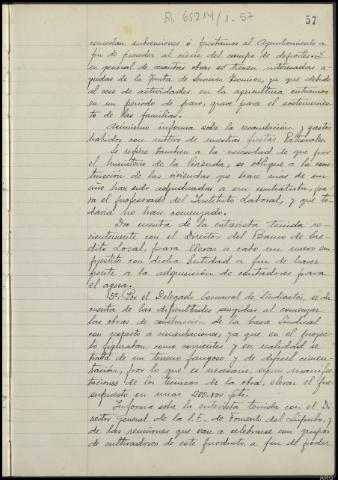 57
concedan subvenciones ó préstamos al Ayuntamiento a
fin de proceder al cierre del campo de deportes. Y
en general de cuantas obras se tienen interesadas a
la Junta de Servicios Técnicos, ya que debido
al cese de actividades en la agricultura entramos
en un periodo de paro, grave para el sostenimien-
to de las familias.
Asimismo informa sobre la recaudación y gastos
habidos con motivo de nuestras fiestas Patronales.
Se refiere tambien a la necesidad de que por
el Ministerio de la Vivienda, se obligue a la cons-
trucción de las viviendas que hace más de un
año han sido adjudicadas a un contratista, pa-
ra el profesorado del Instituto Laboral, y que to-
davía no han comenzado.
Da cuenta de la entrevista tenida re-
cientemente con el Director del Banco de Cré-
dito Local, para llevar a cabo un nuevo em-
préstito con dicha Entidad a fin de hacer
frente a la adquisición de contadores para
el agua.
5º. Por el Delegado Comarcal de Sindicatos, se da
cuenta de las dificultades surgidas al comenzar
las obras de construcción de la Casa Sindical
con respecto a cimentaciones, ya que en el proyec-
to figuraban como corrientes y en realidad se
trata de un terreno fangoso y de dificil cimen-
tación, por lo que es necesario, segun manifes-
taciones de los técnicos de la obra, elevar el pre-
supuesto en unas 200.000 pts.
Informa sobre la entrevista tenida con el Di-
rector General de la S.E. de Fomento del Lúpulo, y
de las reuniones que van a celebrarse con grupos
de cultivadores de este producto, a fin de poder